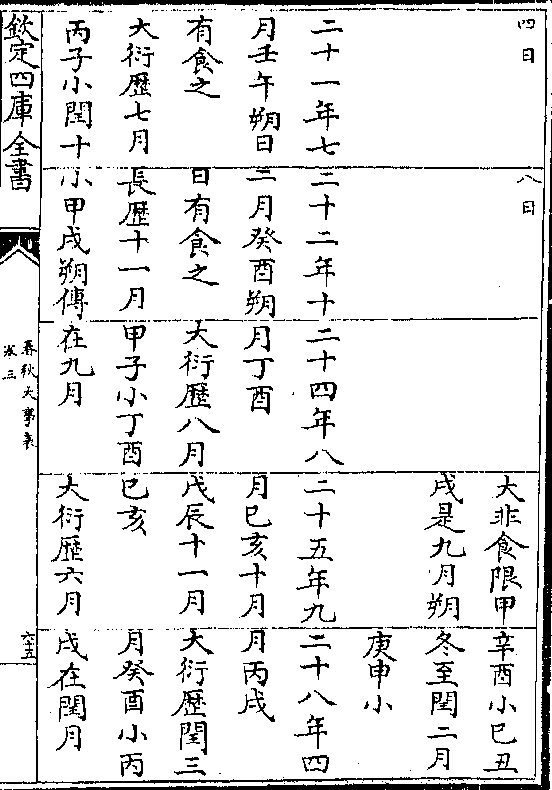 四日
二十一年七
月壬午朔日
有食之
大衍歷七月
丙子小閏十
八日
二十二年十
二月癸酉朔
日有食之
長歷十一月
小甲戌朔傳
二十四年八
月丁酉
大衍歷八月
甲子小丁酉
在九月
大非食限甲
戌是九月朔
二十五年九
月己亥十月
戊辰十一月
己亥
大衍歷六月
辛酉小己丑
冬至閏二月
庚申小
二十八年四
月丙戌
大衍歷閏三
月癸酉小丙
戌在閏月
欽定四庫全書
春秋大事表